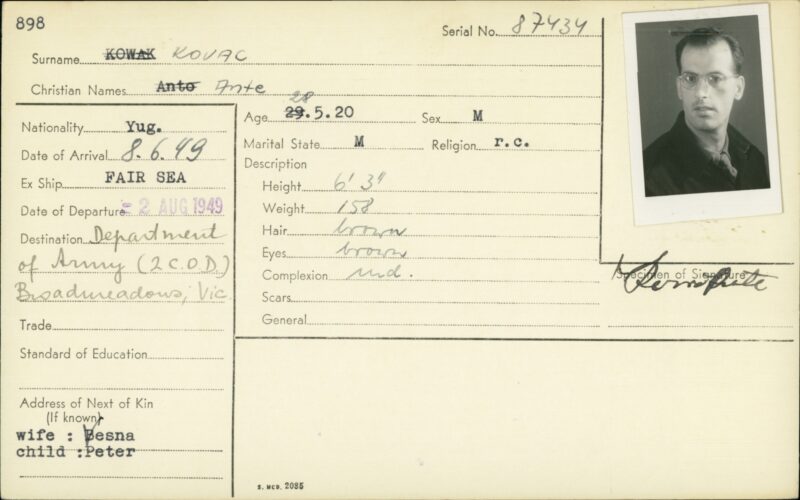 898
Serial No. 87434
Surname KOWAK KOVAC
Christian Names Anto Ante
Nationality Yug.
Date of Arrival 8.6.49
Ex Ship FAIR SEA
Date of Departure 2 AUG 1949
Destination Department
of Army (2 C.O.D.)
Broadmeadows, Vic
Trade
Standard of Education
Address of Next of Kin
(If known)
wife : Vesna
child :Peter
28
Age 29.5.20 Sex M
Marital State M Religion r.c.
Description
Height 6' 3"
Weight 158
Hair brown
Eyes brown
Complexion med.
Scars
General
Specimen of Signature
S. MCD. 2085